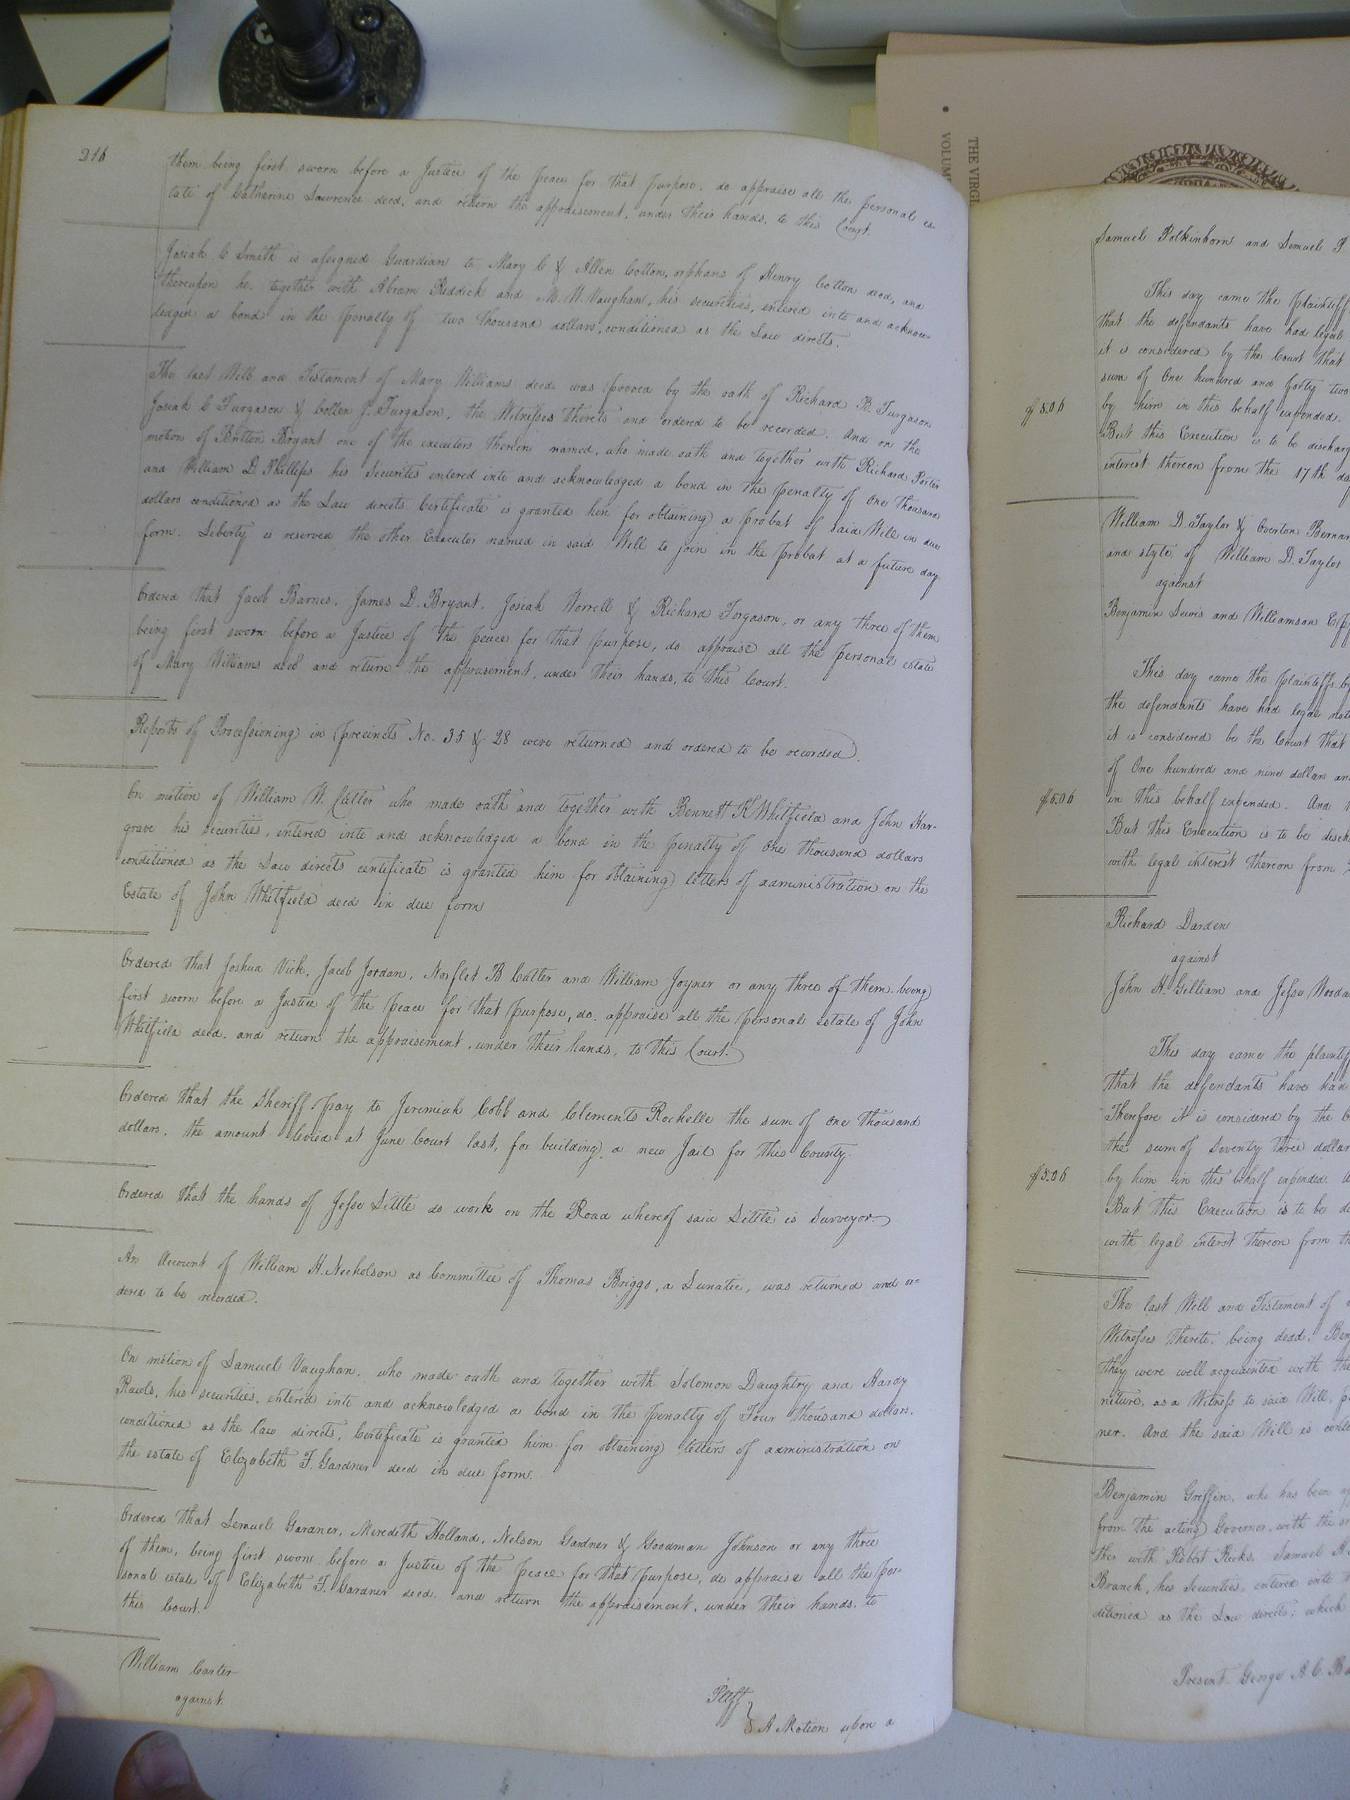 216
them being first sworn before a Justice of the peace for that purpose, do appraise all the personal es-
tate of Catherine Lawrence decd. and return the appraisement, under their hands, to this Court.
Josiah C Smith is assigned Guardian to Mary C & Allen Cotton, orphans of Henry Cotton decd, and
thereupon he, together with Abram Riddick and M. W. Vaughan, his securities, entered into and acknow-
ledged a bond in the penalty of two thousand dollars, conditioned as the Law directs.
The last Will and Testament of Mary Williams decd. was proved by the oath of Richard B. Furgason
Josiah C Furgason & Collen J. Furgason, the Witnesses thereto and ordered to be recorded. And on the
motion of Britton Bryant one of the executors therein named, who made oath and together with Richard Porter
and William D. Phillips his Securities entered into and acknowledged a bond in the penalty of One thousand
dollars conditioned as the Law directs Certificate is granted him for obtaining a probat of said Will in due
form. Liberty is reserved the other Executor named in said Will to join in the probat at a future day
Ordered that Jacob Barnes, James D. Bryant, Josiah Worrell & Richard Forgason, or any three of them
being first sworn before a Justice of the peace for that purpose, do appraise all the personal estate
of Mary Williams decd and return the appraisement, under their hands, to this Court.
Reports of Processioning in precincts No. 35 & 28 were returned and ordered to be recorded.
On motion of William W. Cutler who made oath and together with Bennett K Whitfield and John Har-
grave his securities, entered into and acknowledged a bond in the penalty of One thousand dollars
conditioned as the Law directs certificate is granted him for obtaining letters of administration on the
Estate of John Whitfield decd in due form
Ordered that Joshua Vick, Jacob Jordan, Norflet B Cutler and William Joyner or any three of them being
first sworn before a Justice of the peace for that purpose, do appraise all the personal estate of John
Whitfield decd. and return the appraisement, under their hands, to this Court.
Ordered that the Sheriff pay to Jeremiah Cobb and Clements Rochelle the sum of One thousand
dollars, the amount levied at June Court last, for building a new Jail for this County.
Ordered that the hands of Jesse Little do work on the Road whereof said Little is Surveyor.
An Account of William H. Nicholson as Committee of Thomas Briggs, a Lunatic, was returned and or-
dered to be recorded.
On motion of Samuel Vaughan, who made oath and together with Solomon Daughtry and Hardy
Rawls, his securities, entered into and acknowledged a bond in the penalty of Four thousand dollars.
conditioned as the law directs, Certificate is granted him for obtaining letters of administration on
the estate of Elizabeth F. Gardner decd in due form.
Ordered that Lemuel Gardner, Meredith Holland, Nelson Gardner & Goodman Johnson or any three
of them, being first sworn before a Justice of the peace for that purpose, do appraise all the per-
sonal estate of Elizabeth F. Gardner decd. and return the appraisement, under their hands, to
this Court.
William Carter Pltff
against } A Motion upon a
THE VIRGI
VOLUM
Samuel Bolkinhorn and Lemuel P
This day came the plaintiff
that the defendants have had legal
it is considered by the Court that
sum of One hundred and forty two
by him in this behalf expended.
5.06
But this Execution is to be discharg
interest thereon from the 17th da
William D. Taylor & Overton Bernar
and style of William D. Taylor
against
Benjamin Lewis and Williamson Epp
This day came the plaintiffs by
the defendants have had legal noti
it is considered be the Court that
of One hundred and nine dollars an
5.06
in this behalf expended. And
But this Execution is to be disch
with legal interest thereon from
Richard Darden
against
John H. Gilliam and Jesse Wooda
This day came the plaintif
that the defendants have had
Therefore it is considered by the C
the sum of Seventy three dollar
5.06
by him in this behalf expended. A
But this Execution is to be di
with legal interest thereon from th
The last Will and Testament of
Witnesses thereto, being dead, Ben
they were well acquainted with the
niture, as a Witness to said Will,
ner. And the said Will is conti
Benjamin Griffin, who has been
from the acting Governor, with the
ther with Robert Ricks, Samuel
Branch, his Securities, entered into
ditioned as the Law directs; which
Present George A. C. Ba